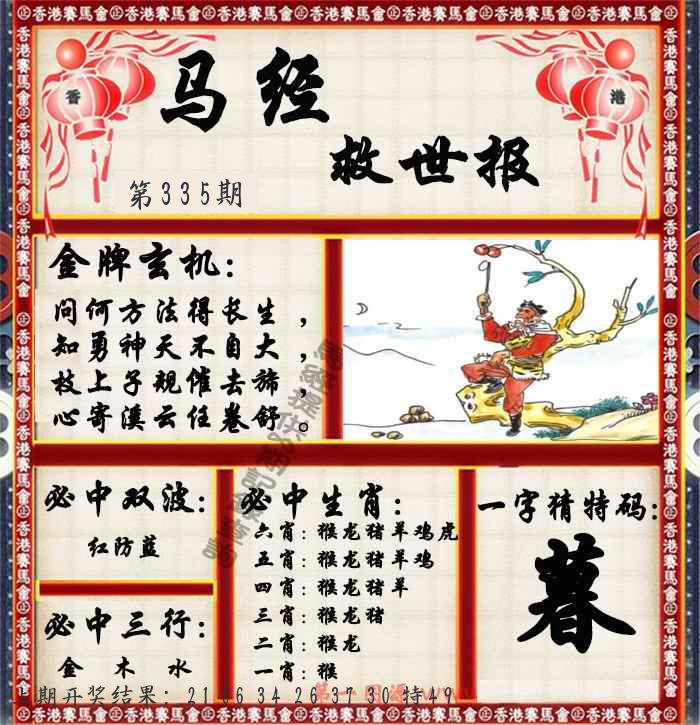 香港賽馬會
香
港
马经
救世报
第335期
金牌玄机：
问何方法得长生，
知勇神天不自大，
枝上子规催去旆，
心寄溪云任卷舒。
必中双波：
红防蓝
必中三行：
金 木 水
必中生肖：
六肖：猴龙猪羊鸡虎
五肖：猴龙猪羊鸡
四肖：猴龙猪羊
三肖：猴龙猪
二肖：猴龙
一肖：猴
一字猜特码：
暮
期开奖结果：21 06 34 26 37 30 特49